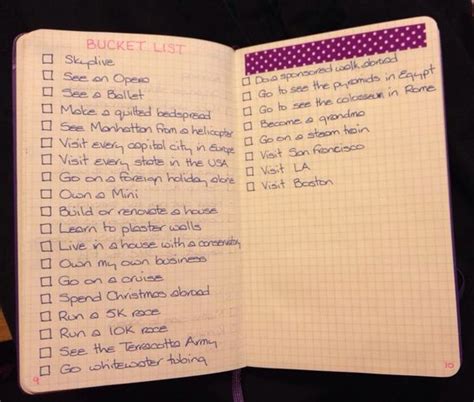 BUCKET LIST
Skydive
See an Opera
See a Ballet
Make a quilted bedspread
See Manhattan from a helicopter
Visit every capital city in Europe
Visit every state in the USA
Go on a foreign holiday alone
Own a Mini
Build or renovate a house
Learn to plaster walls
Live in a house with a conservatory
Own my own business
Go on a cruise
Spend Christmas abroad
Run a 5K race
Run a 10K race
See the Terracotta Army
Go whitewater tubing
9
Do a sponsored walk abroad
Go to see the pyramids in Egypt
Go to see the colosseum in Rome
Become a grandma
Go on a steam train
Visit San Francisco
Visit LA
Visit Boston
10